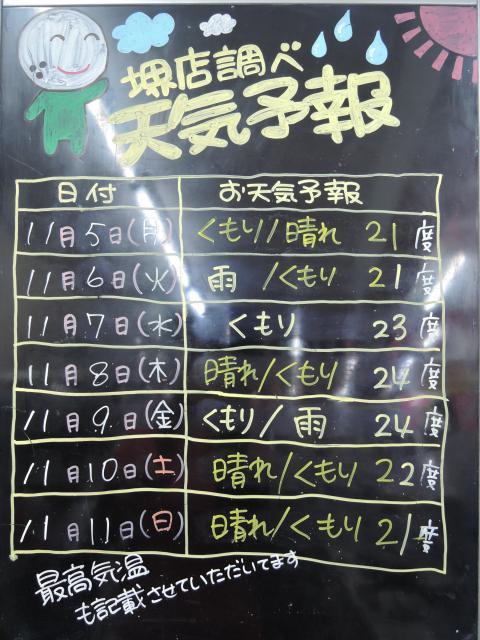 堺店調べ
天気予報
日付 お天気予報
11月5日(月) くもり/晴れ 21度
11月6日(火) 雨/くもり 21度
11月7日(水) くもり 23度
11月8日(木) 晴れ/くもり 24度
11月9日(金) くもり/雨 24度
11月10日(土) 晴れ/くもり 22度
11月11日(日) 晴れ/くもり 21度
最高気温
も記載させていただいてます